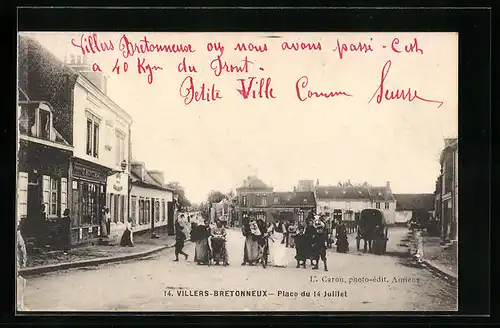 Villers Bretonneux où nous avons passé - C'est
a 40 Kgm du Front -
Petite Ville Comme
L. Caron, photo-édit, Amiens
14. VILLERS-BRETONNEUX — Place du 14 Juillet